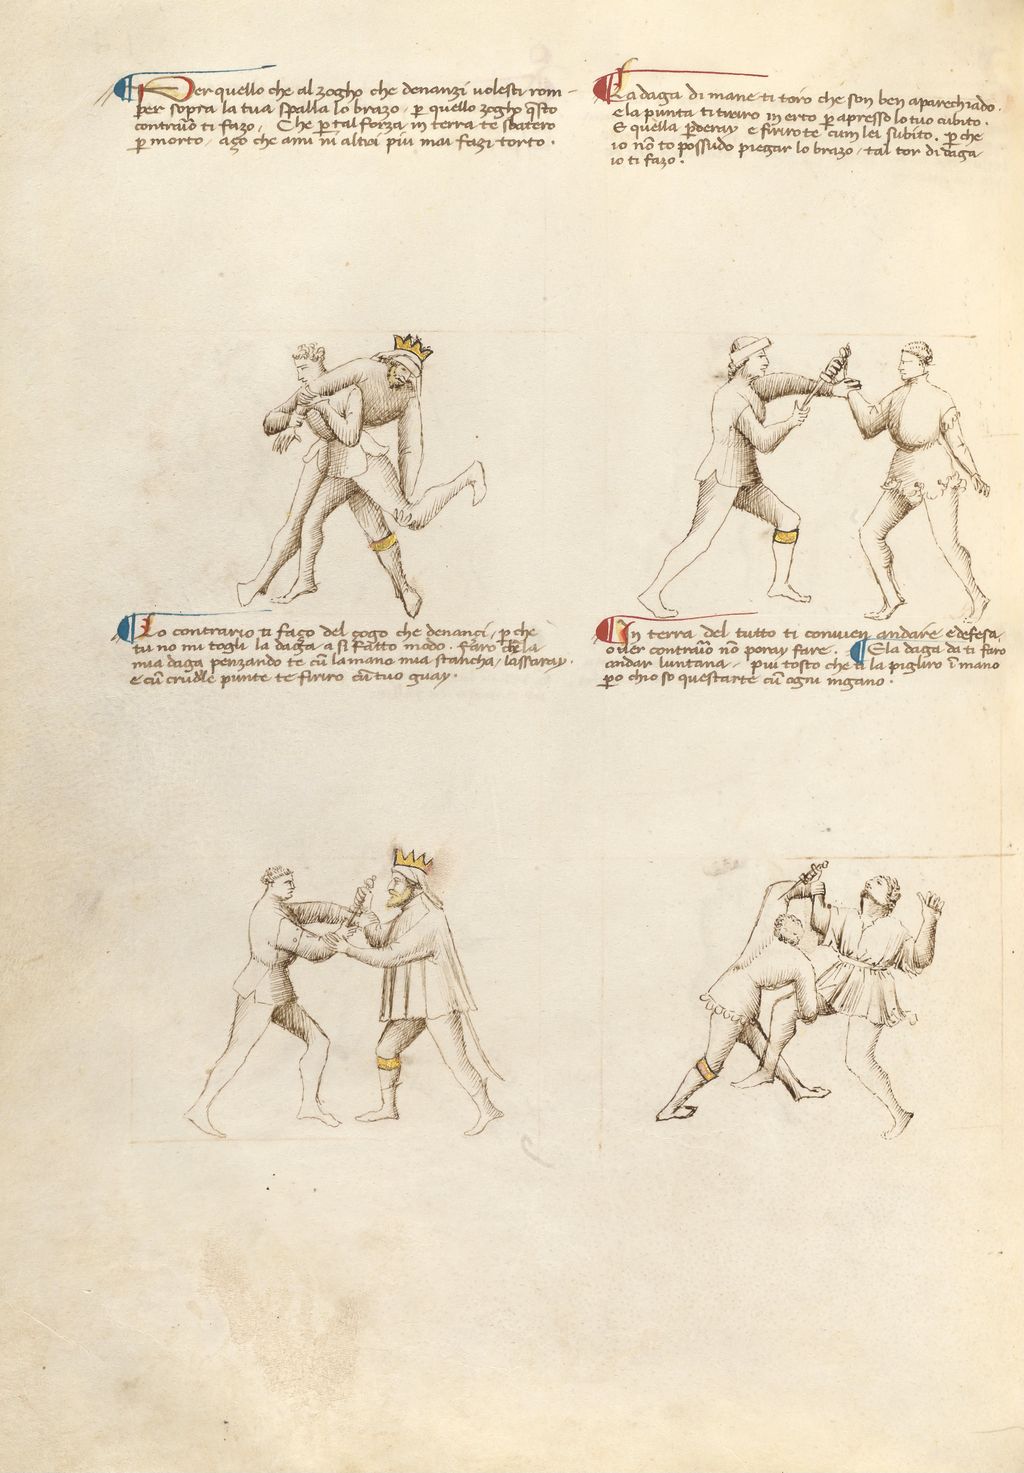 Per quello che al zogho che denanzi volesti rom-
per sopra la tua spalla lo brazo, p quello zogho q̃sto
contraũo ti fazo, Che p tal forza in terra te sbatero
p morto, aço che ami ni altroi piu mai fazi torto.
La daga di mane ti toro che son ben aparechiado.
e la punta ti tirero in erto p apresso lo tuo cubito.
E quella pderay e firirote cum lei subito. p che
io nõ to possudo piegar lo brazo, tal tor di daga
io ti fazo.
Lo contrario ti faço del çogo che denançi, p che
tu no mi togli la daga, a si fatto modo. farò che la
mia daga penzando te cũ la mano mia stancha, lassaray.
e cũ crudele punte te firiro cũ tuo guay.
In terra del tutto ti convien andare e defesa,
o ver contraũo nõ poray fare. E la daga da ti faro
andar luntana, piu tosto che ti la pigliro ĩ mano
po chio so questarte cũ ogni ingano.